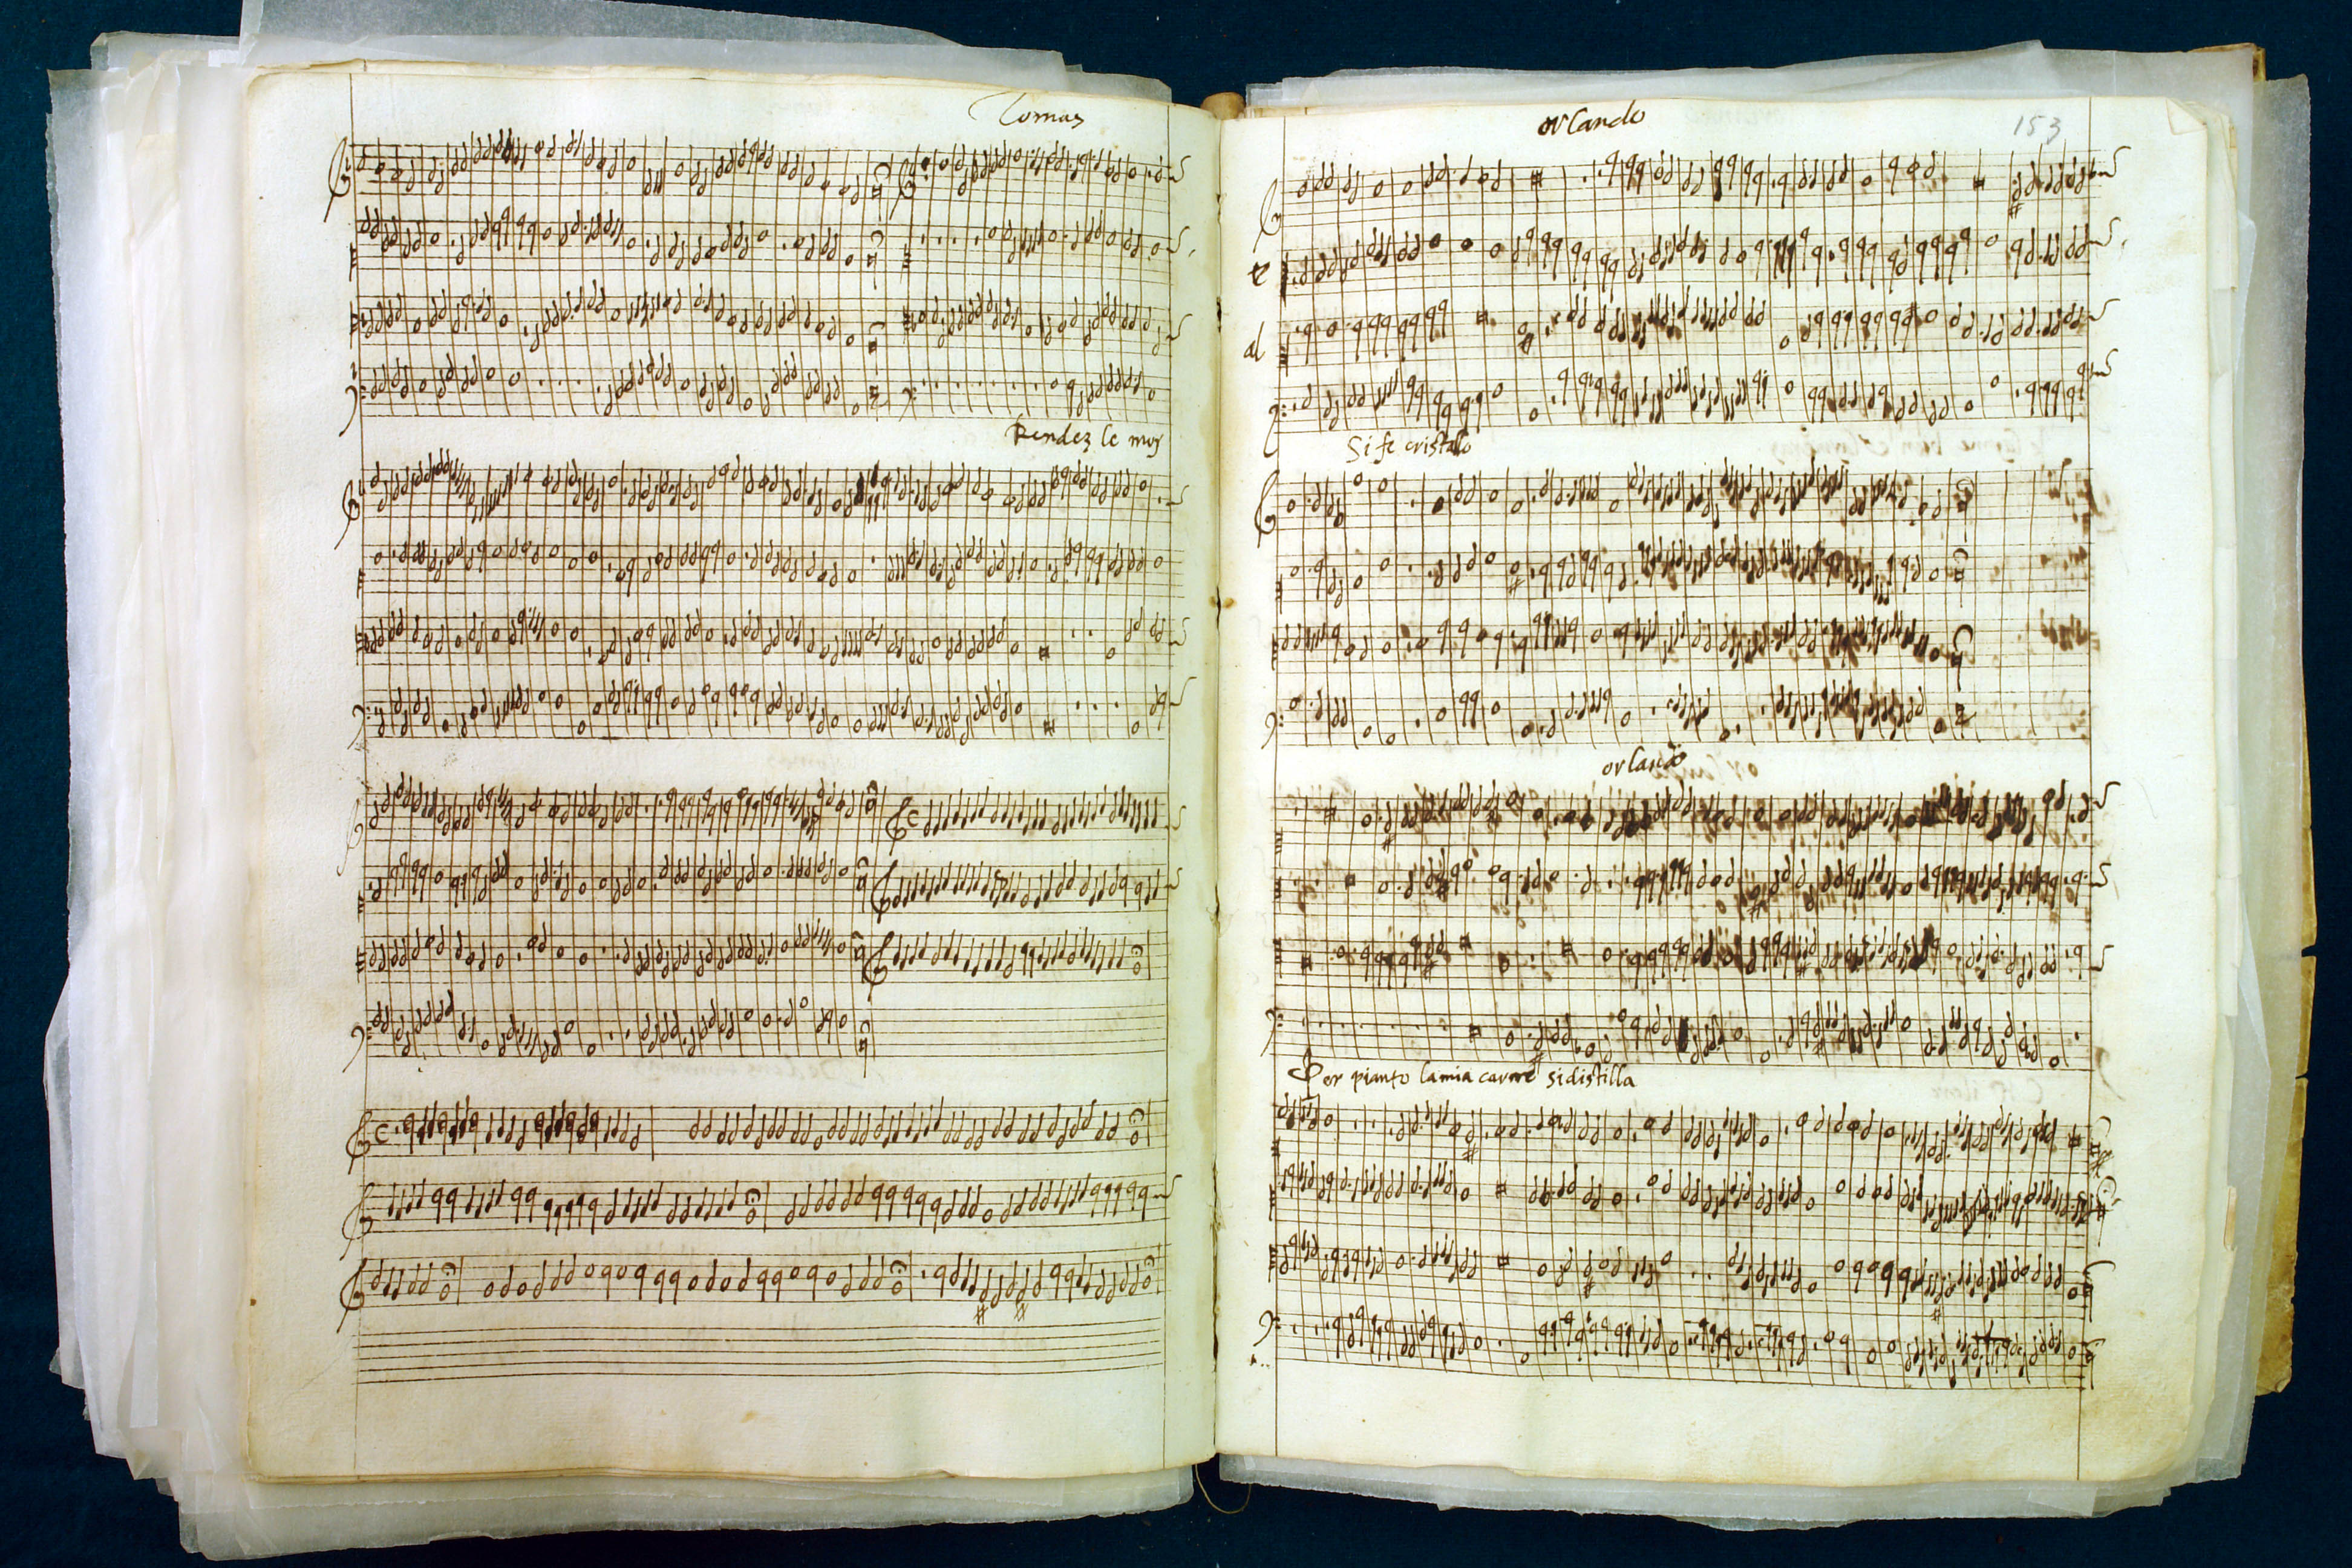 Tomas
Rendez le moy
orlando
153
te
al
Si fe cristallo
orlando
Per pianto la mia carne si distilla